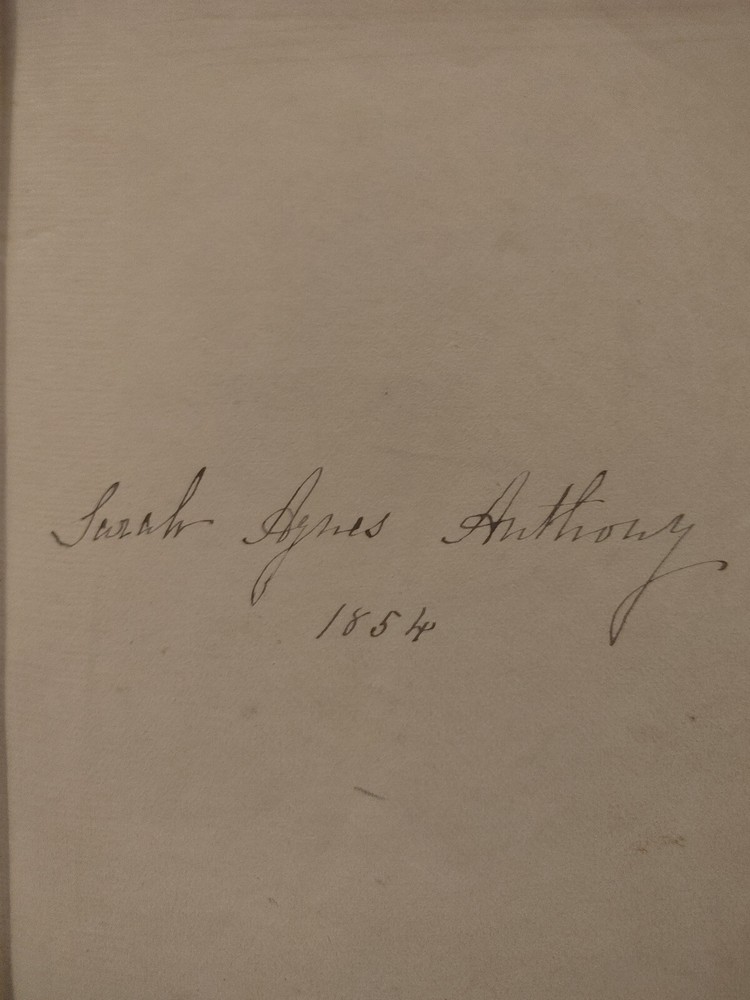 Sarah Agnes Anthony
1854